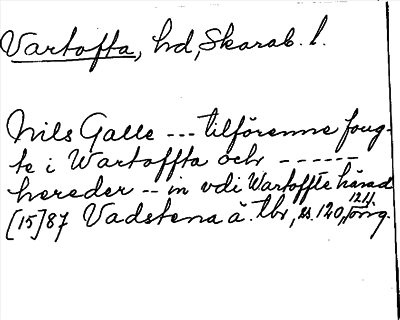 Vartofta, hd, Skarab. l.
Nils Galle --- tilförenne foug-
te i Wartoffta ochr ------
hereder -- in vdi Wartoffte härad
[15]87 Vadstena ä. tbr, ss. 120, 124, orig.